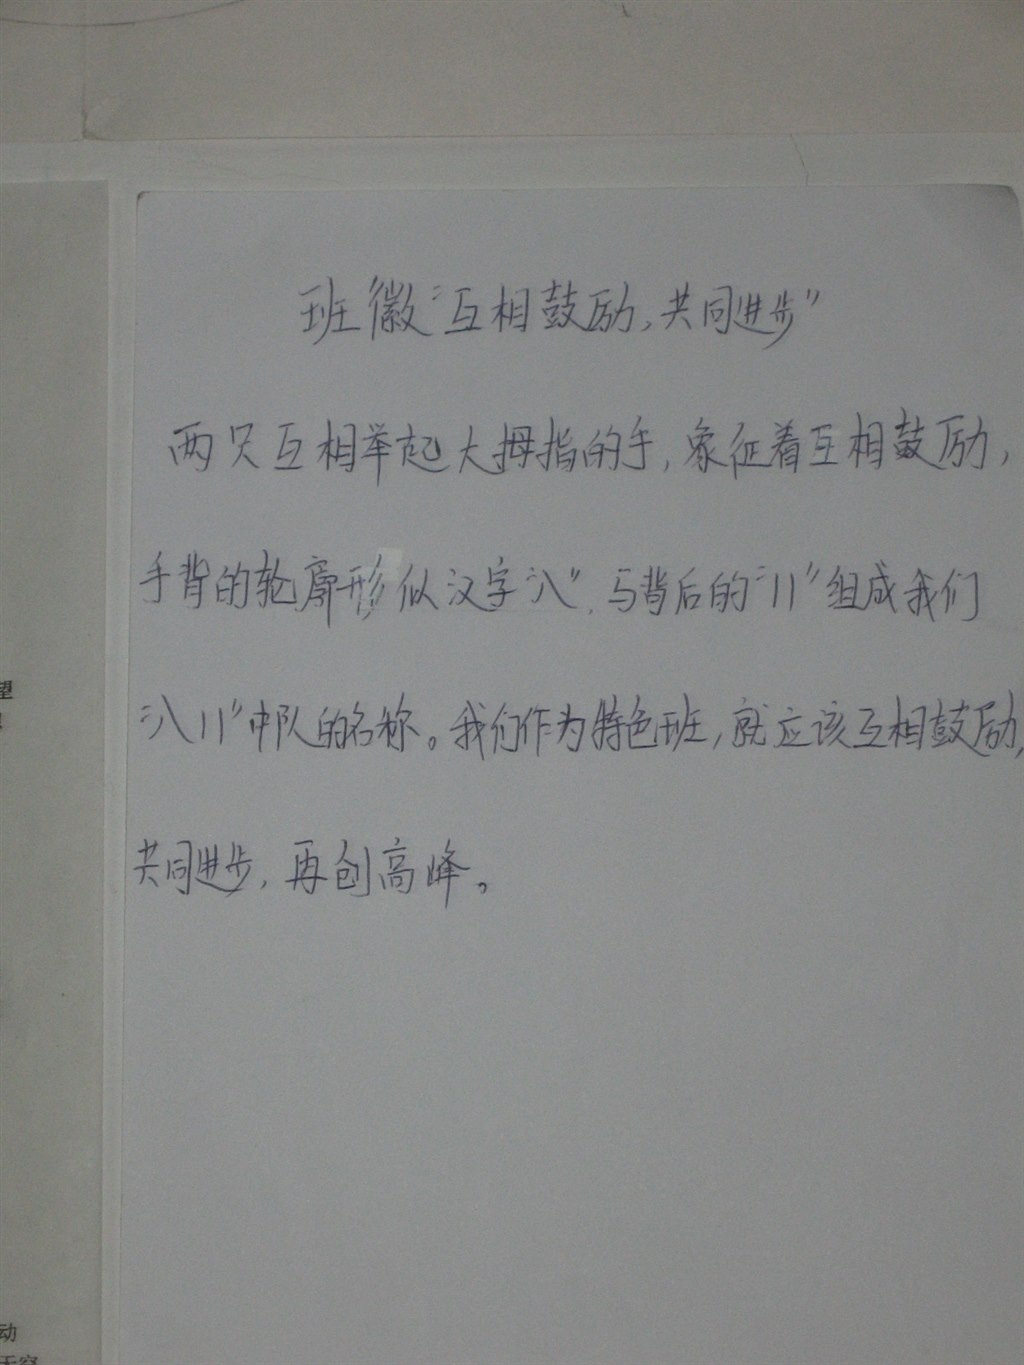 班徽“互相鼓励，共同进步”
两只互相举起大拇指的手，象征着互相鼓励，
手背的轮廓形似汉字“八”，与背后的“11”组成我们
“八11”中队的名称。我们作为特色班，就应该互相鼓励，
共同进步，再创高峰。
望
动